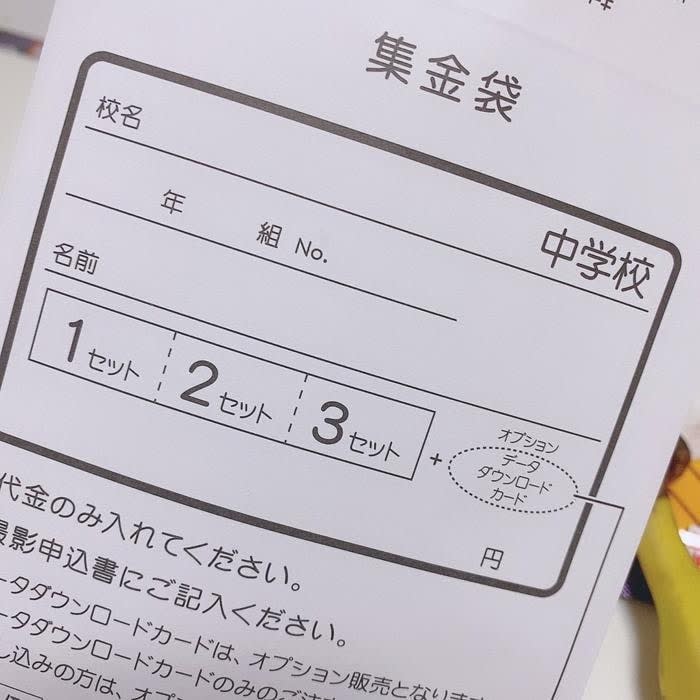 集金袋
校名
中学校
年 組 No.
名前
1セット 2セット 3セット
+
オプション
データ
ダウンロード
カード
円
代金のみ入れてください。
撮影申込書にご記入ください。
ータダウンロードカードは、オプション販売となります
ータダウンロードカードのみのご注
し込みの方は、オプ